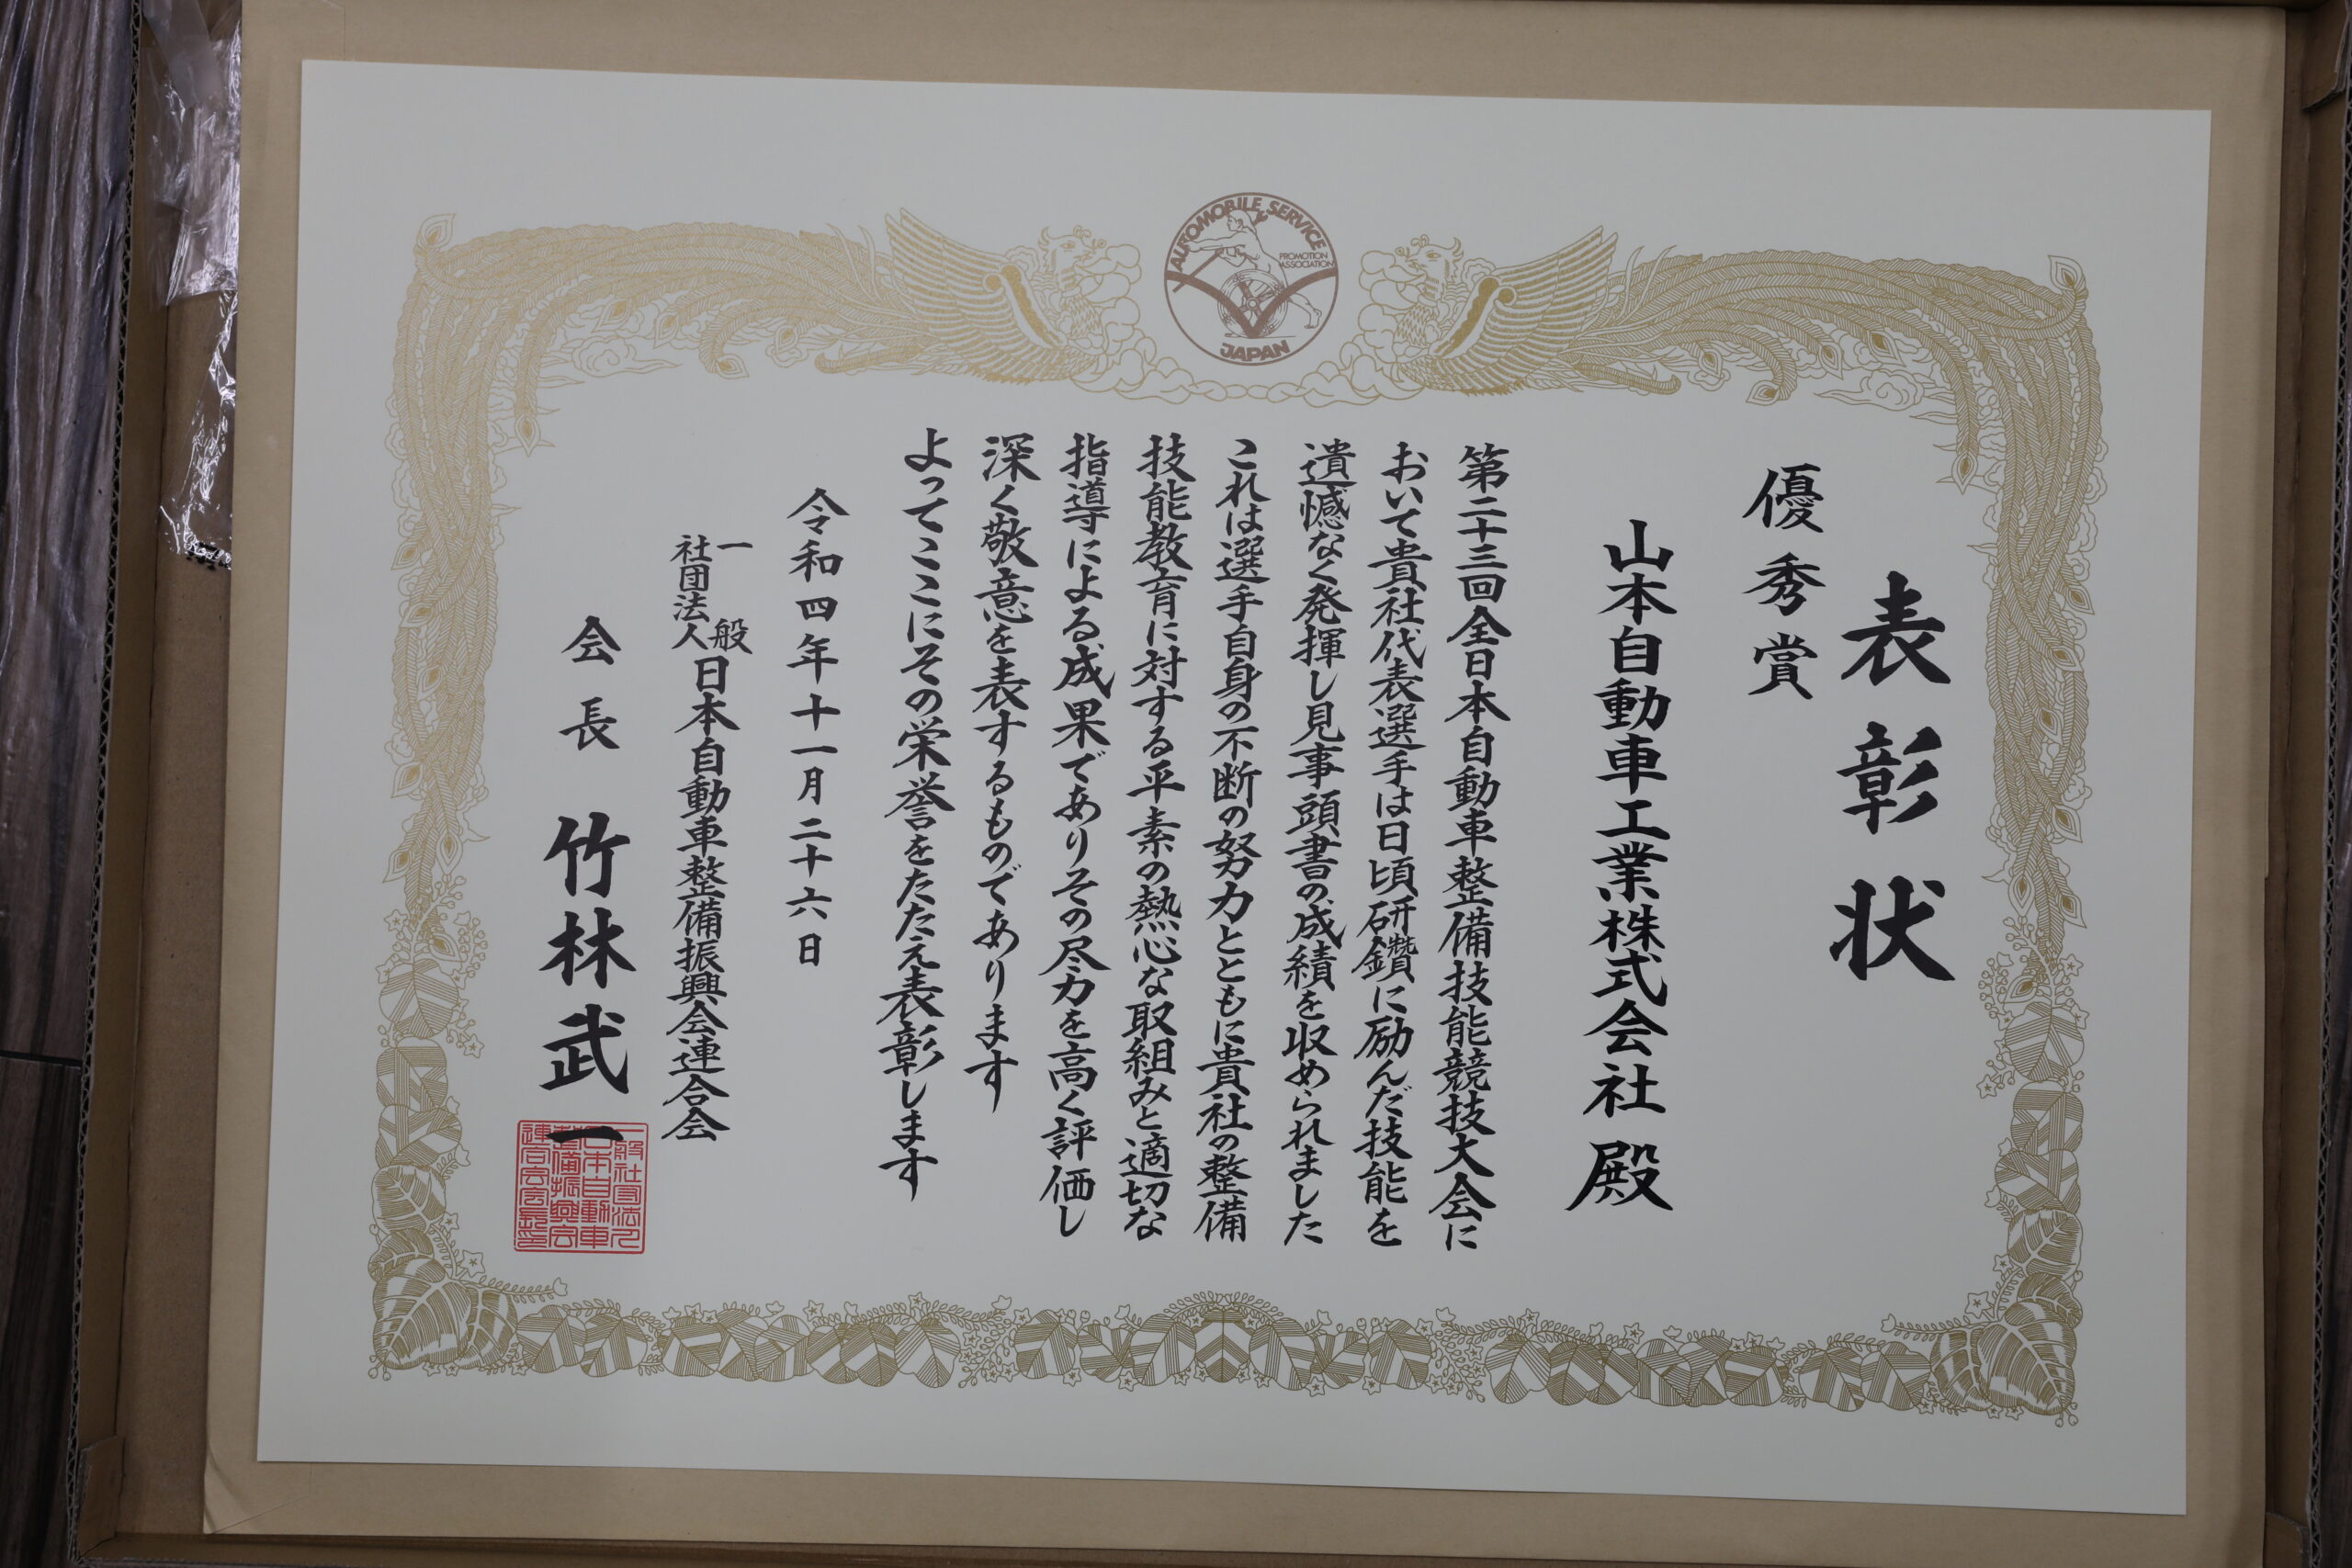 AUTOMOBILE SERVICE
PROMOTION
ASSOCIATION
JAPAN
表彰状
優秀賞
山本自動車工業株式会社 殿
第二十三回全日本自動車整備技能競技大会に
おいて貴社代表選手は日頃研鑽に励んだ技能を
遺憾なく発揮し見事頭書の成績を収められました
これは選手自身の不断の努力とともに貴社の整備
技能教育に対する平素の熱心な取組みと適切な
指導による成果でありその尽力を高く評価し
深く敬意を表するものであります
よってここにその栄誉をたたえ表彰します
令和四年十一月二十六日
一般社団法人日本自動車整備振興会連合会
会長 竹林武一
一般社団法人
日本自動車
整備振興会
連合会会長印